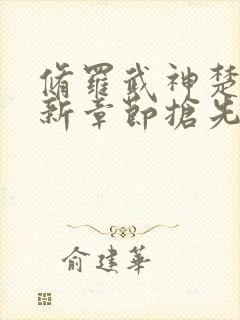 脩羅武神楚
新章節搶先
俞建華